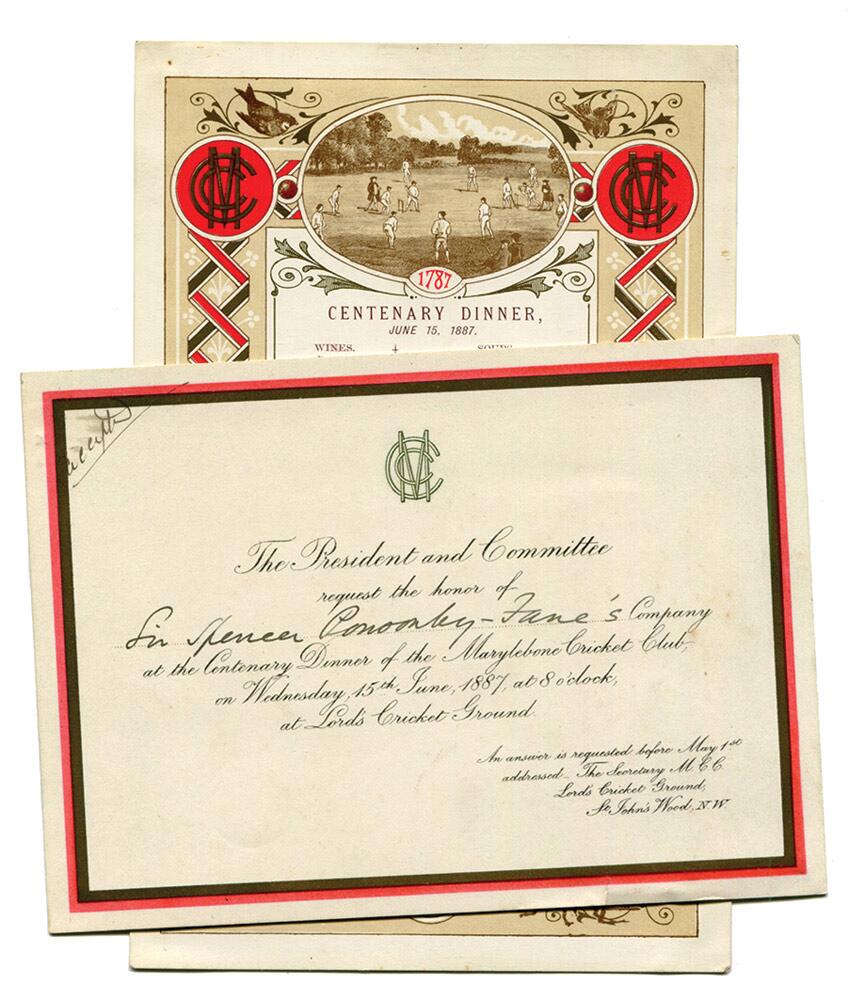 MCC
MCC
1787
CENTENARY DINNER,
JUNE 15, 1887.
WINES. SOUPS
accepted
MCC
The President and Committee
request the honor of
Sir Spencer Ponsonby-Fane's Company
at the Centenary Dinner of the Marylebone Cricket Club,
on Wednesday, 15th June, 1887, at 8 o'clock,
at Lord's Cricket Ground.
An answer is requested before May 1st
addressed _ The Secretary M.C.C.
Lord's Cricket Ground,
St. John's Wood, N.W.